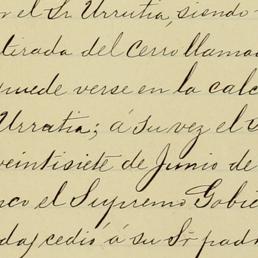 n el Sr Urrutia, siendo
tirada del Cerro llama
puede verse en la calc
Urrutia; á su vez el
veintisiete de Junio de
nco el Supremo Gobie
da) cedió á su Sr padr